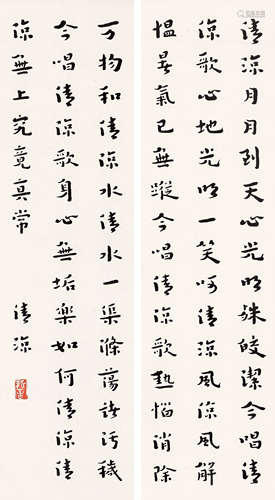 清涼月月到天心光明殊皎潔今唱清
涼歌心地光明一笑呵清涼風涼風解
慍暑氣已無蹤今唱清涼歌熱惱消除
万物和清涼水清水一渠滌蕩諸污穢
今唱清涼歌身心無垢樂如何清涼清
涼無上究竟真常 清涼